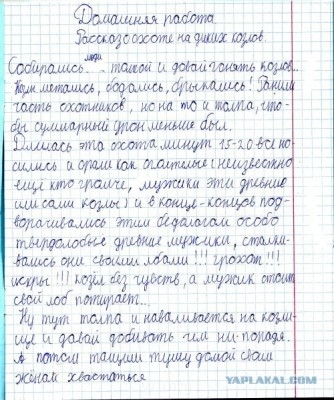 Домашняя работа.
Рассказ о охоте на диких козлов.
люди
Собирались толпой и давай гонять козлов.
Козлы метались, бодались, брыкались! Ранили
часть охотников, но на то и толпа, что-
бы суммарный урон меньше был.
Длилась эта охота минут 15-20 все но-
сились и орали как оголтелые (неизвестно
ещё кто громче, мужики эти древние
или сами козлы) и в конце-концов под-
ворачивались этим бедолагам особо
твердолобые древние мужики, сталки-
вались они своими лбами!!! грохот!!!
искры!!! козёл без чувств, а мужик стоит
свой лоб потирает...
Ну тут толпа и наваливается на козли-
ще и давай добивать чем ни-попадя.
А потом тащили тушу домой своим
жёнам хвастаться.
YAPLAKAL.COM